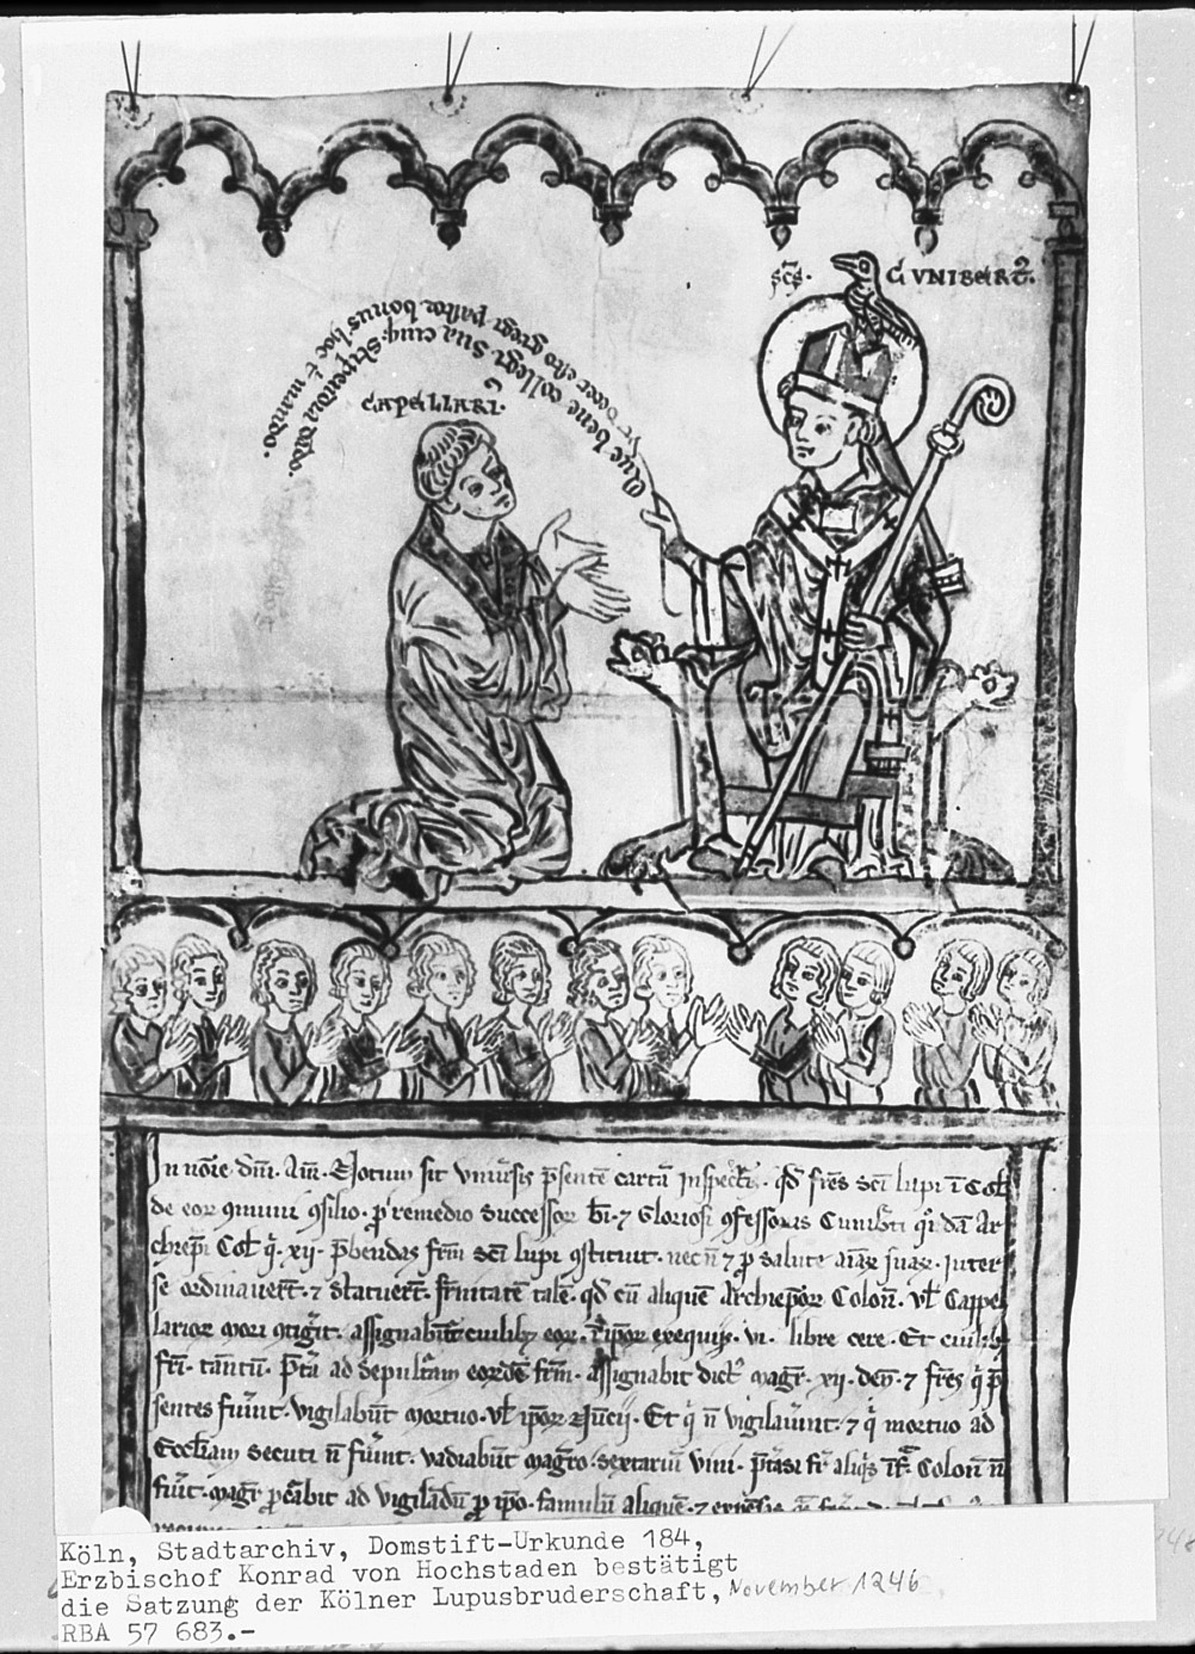 Sc̄s. CVNIBERTꝰ.
CAPELLARIꝰ.
Que bene collegi sua cuiq; stipendia reddo.
esto gregi pastor bonus hoc ⁊ mando.
In noīe dn̄i. Am̄. Notum sit vniu̾sis p̄sentē cartā inspectꝉis. qd̄ fr̄es sc̄i lupi ī Col̄
de eoꝝ ꝯmuni ꝯsilio. ꝓ remedio successoꝝ b̄i. ⁊ Gloriosi ꝯfessoris Cuniƀti qͦndā Ar
chiep̄i Col̄ qͥ. xij. p̄bendas fr̄m sc̄i lupi ꝯstituit. necn̄ ⁊ ꝓ salute aīaꝝ suaꝝ. inter
se ordinauer̄t. ⁊ statuer̄t. fr̄nitatē talē. qd̄ cū aliquē Archiep̄oꝝ Colon̄. vl̄ Cappel
larioꝝ mori ꝯtig̾it. assignabūt cuilibꝫ eoꝝ. ī ip̄oꝝ exequijs. vi. libre cere. Et cuilibꝫ
fr̄i. tan̄tū. p̄tā ad sepult̾am eordē fr̄m. assignabit dict̾ magr̄. xij. den̄. ⁊ fr̄es qͥ p̄
sentes fu̾int. vigilabūt mortuo. vl̄ ip̄oꝝ nūcij. Et qͥ n̄ vigilau̾int. ⁊ qͥ mortuo ad
Eccl̄iam secuti n̄ fu̾int. vadiabūt magr̄o. sextariū vini. p̄t̾ea si fr̄ aliqͥs īf̾ Colon̄ n̄
fu̾it. magr̄ ꝓcābit ad vigilādū ꝓ ip̄o. famulū aliquē. ⁊
Köln, Stadtarchiv, Domstift-Urkunde 184,
Erzbischof Konrad von Hochstaden bestätigt
die Satzung der Kölner Lupusbruderschaft, November 1246
RBA 57 683.-